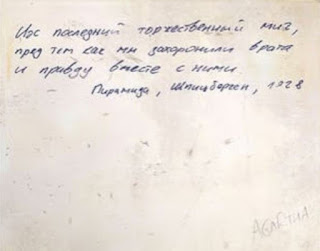 Наш последний торжественный миг,
пред тем как мы захоронили врата
и правду вместе с ними.
Пирамида, Шпицберген, 1928
AGARTHA